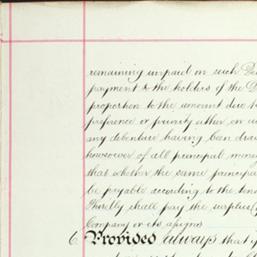 remaining unpaid on such De
payment to the holders of the D
proportion to the amount due t
preference or priority either on a
any debenture having been du
howsoever of all principal mon
that whether the same principa
be payable according to the ten
thirdly shall pay the surplus (
Company or its assigns
6. Provided always that i